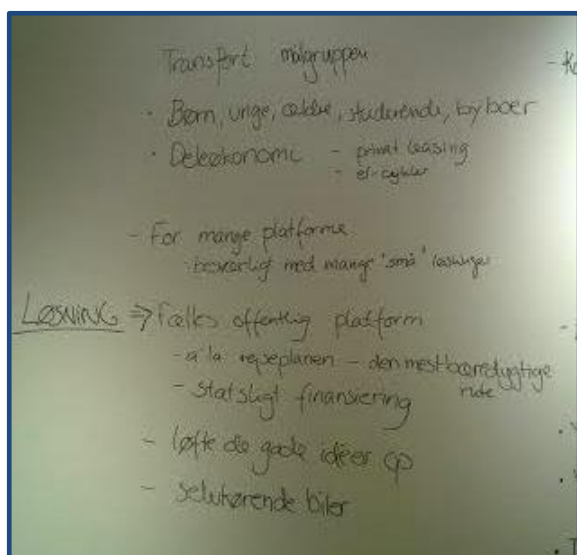 Transport målgruppen
• Børn, unge, ældre, studerende, byboer
• Deleøkonomi - privat leasing
- el-cykler
- For mange platforme
besværligt med mange "små" løsninger
LØSNING => Fælles offentlig platform
- a'la rejseplanen - den mest bæredygtige
rute
- statsligt finansiering
- løfte de gode idéer op
- selvkørende biler